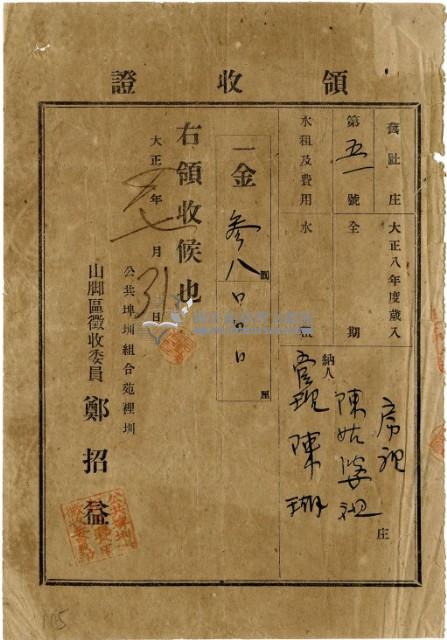 領收證
舊社庄 大正八年度歲入
第五一號 全期
水租及費用 水租
房裡 庄
納人 陳姑婆祖
管理 陳瑚
一金 參八口四口
圓 厘
右領收候也
大正 年七月31日
公共埤圳組合苑裡圳
山脚區徵收委員 鄭招益
105